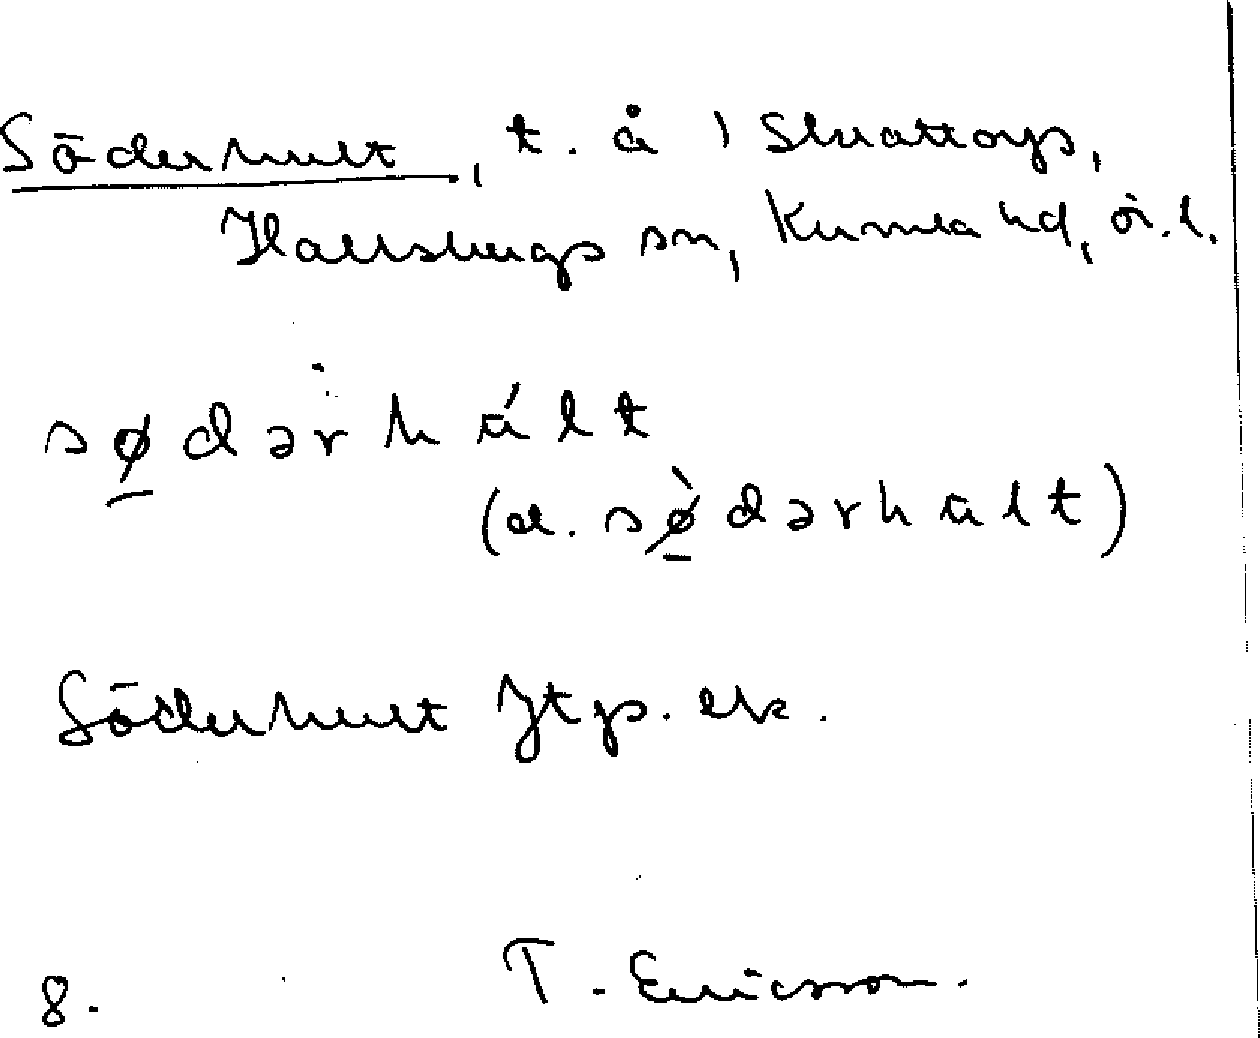 Söderhult, t. å 1 Skvattorps,
Hallsbergs sn, Kumla hd, ör. l.
sø̱dərhált
(ä. sø̱̀dərhalt)
Söderhult Jtp. ek.
8. T. Ericsson.